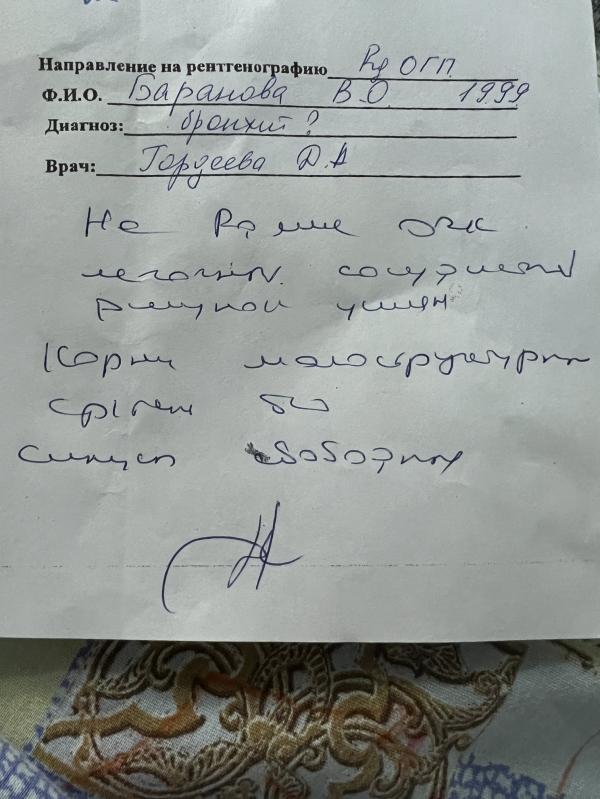 Направление на рентгенографию Rg ОГП.
Ф.И.О. Баранова В.О. 1999
Диагноз: бронхит?
Врач: Гордеева Д.А
На Rgтме ОГК
легочн. сосудист
рисунок усилен
Корни малоструктурны
Срединн
синусы свободны